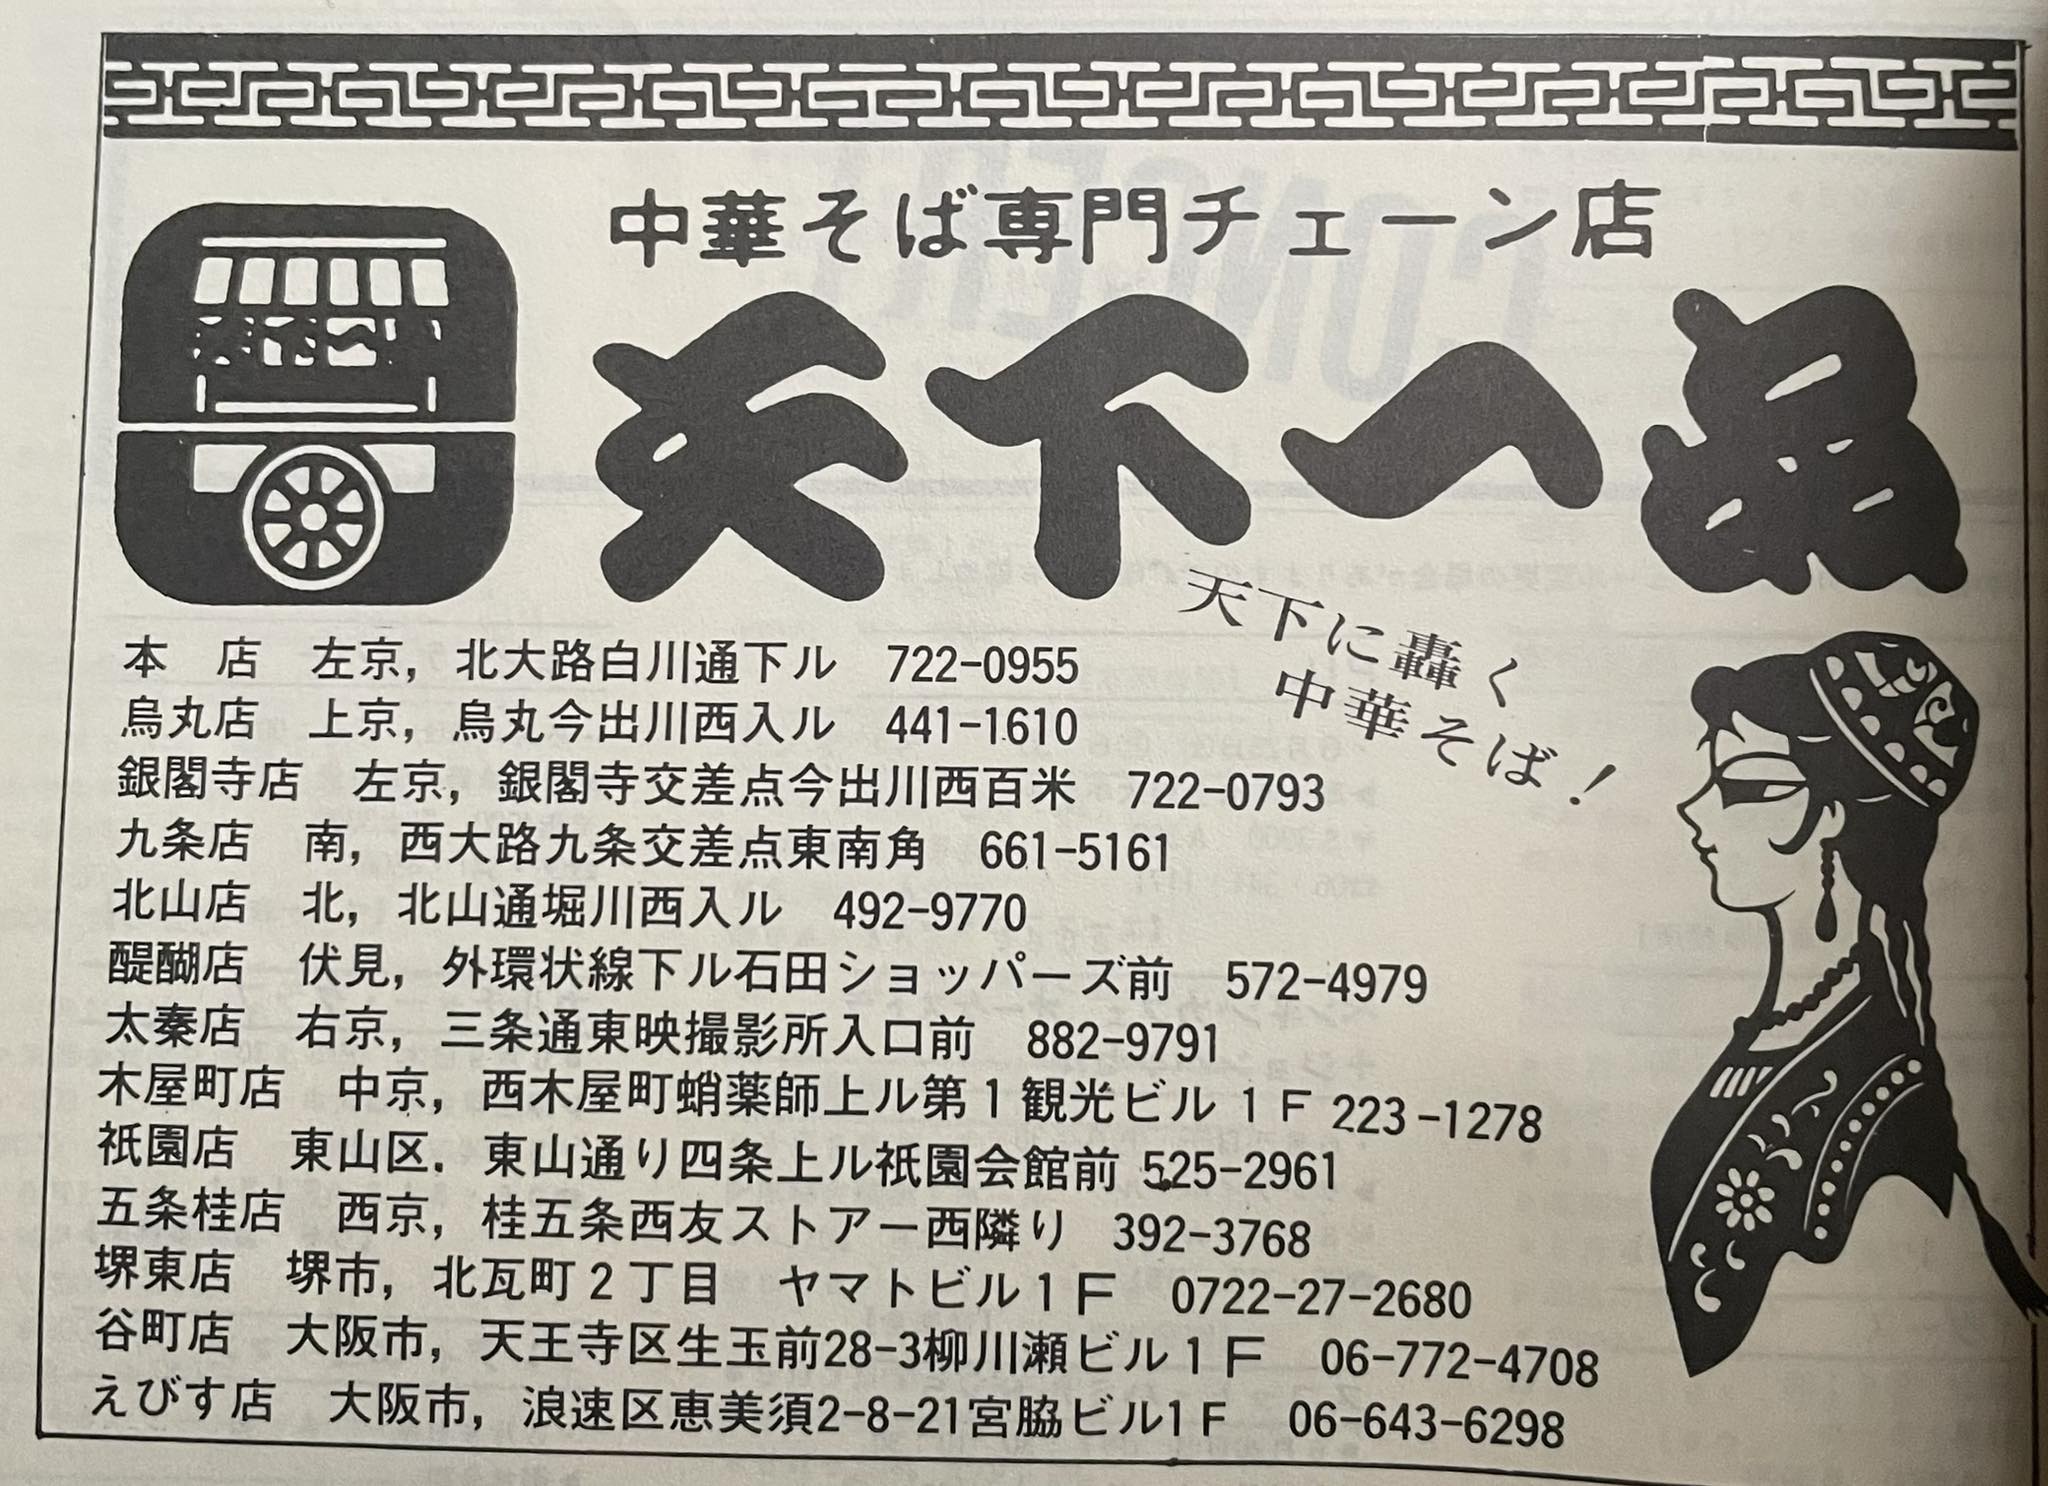 中華そば専門チェーン店
天下一品
天下に轟く
中華そば！
本　店　左京，北大路白川通下ル　722-0955
烏丸店　上京，烏丸今出川西入ル　441-1610
銀閣寺店　左京，銀閣寺交差点今出川西百米　722-0793
九条店　南，西大路九条交差点東南角　661-5161
北山店　北，北山通堀川西入ル　492-9770
醍醐店　伏見，外環状線下ル石田ショッパーズ前　572-4979
太秦店　右京，三条通東映撮影所入口前　882-9791
木屋町店　中京，西木屋町蛸薬師上ル第1観光ビル1F 223-1278
祇園店　東山区．東山通り四条上ル祇園会館前 525-2961
五条桂店　西京，桂五条西友ストアー西隣り　392-3768
堺東店　堺市，北瓦町2丁目　ヤマトビル1F　0722-27-2680
谷町店　大阪市，天王寺区生玉前28-3柳川瀬ビル1F　06-772-4708
えびす店　大阪市，浪速区恵美須2-8-21宮脇ビル1F　06-643-6298